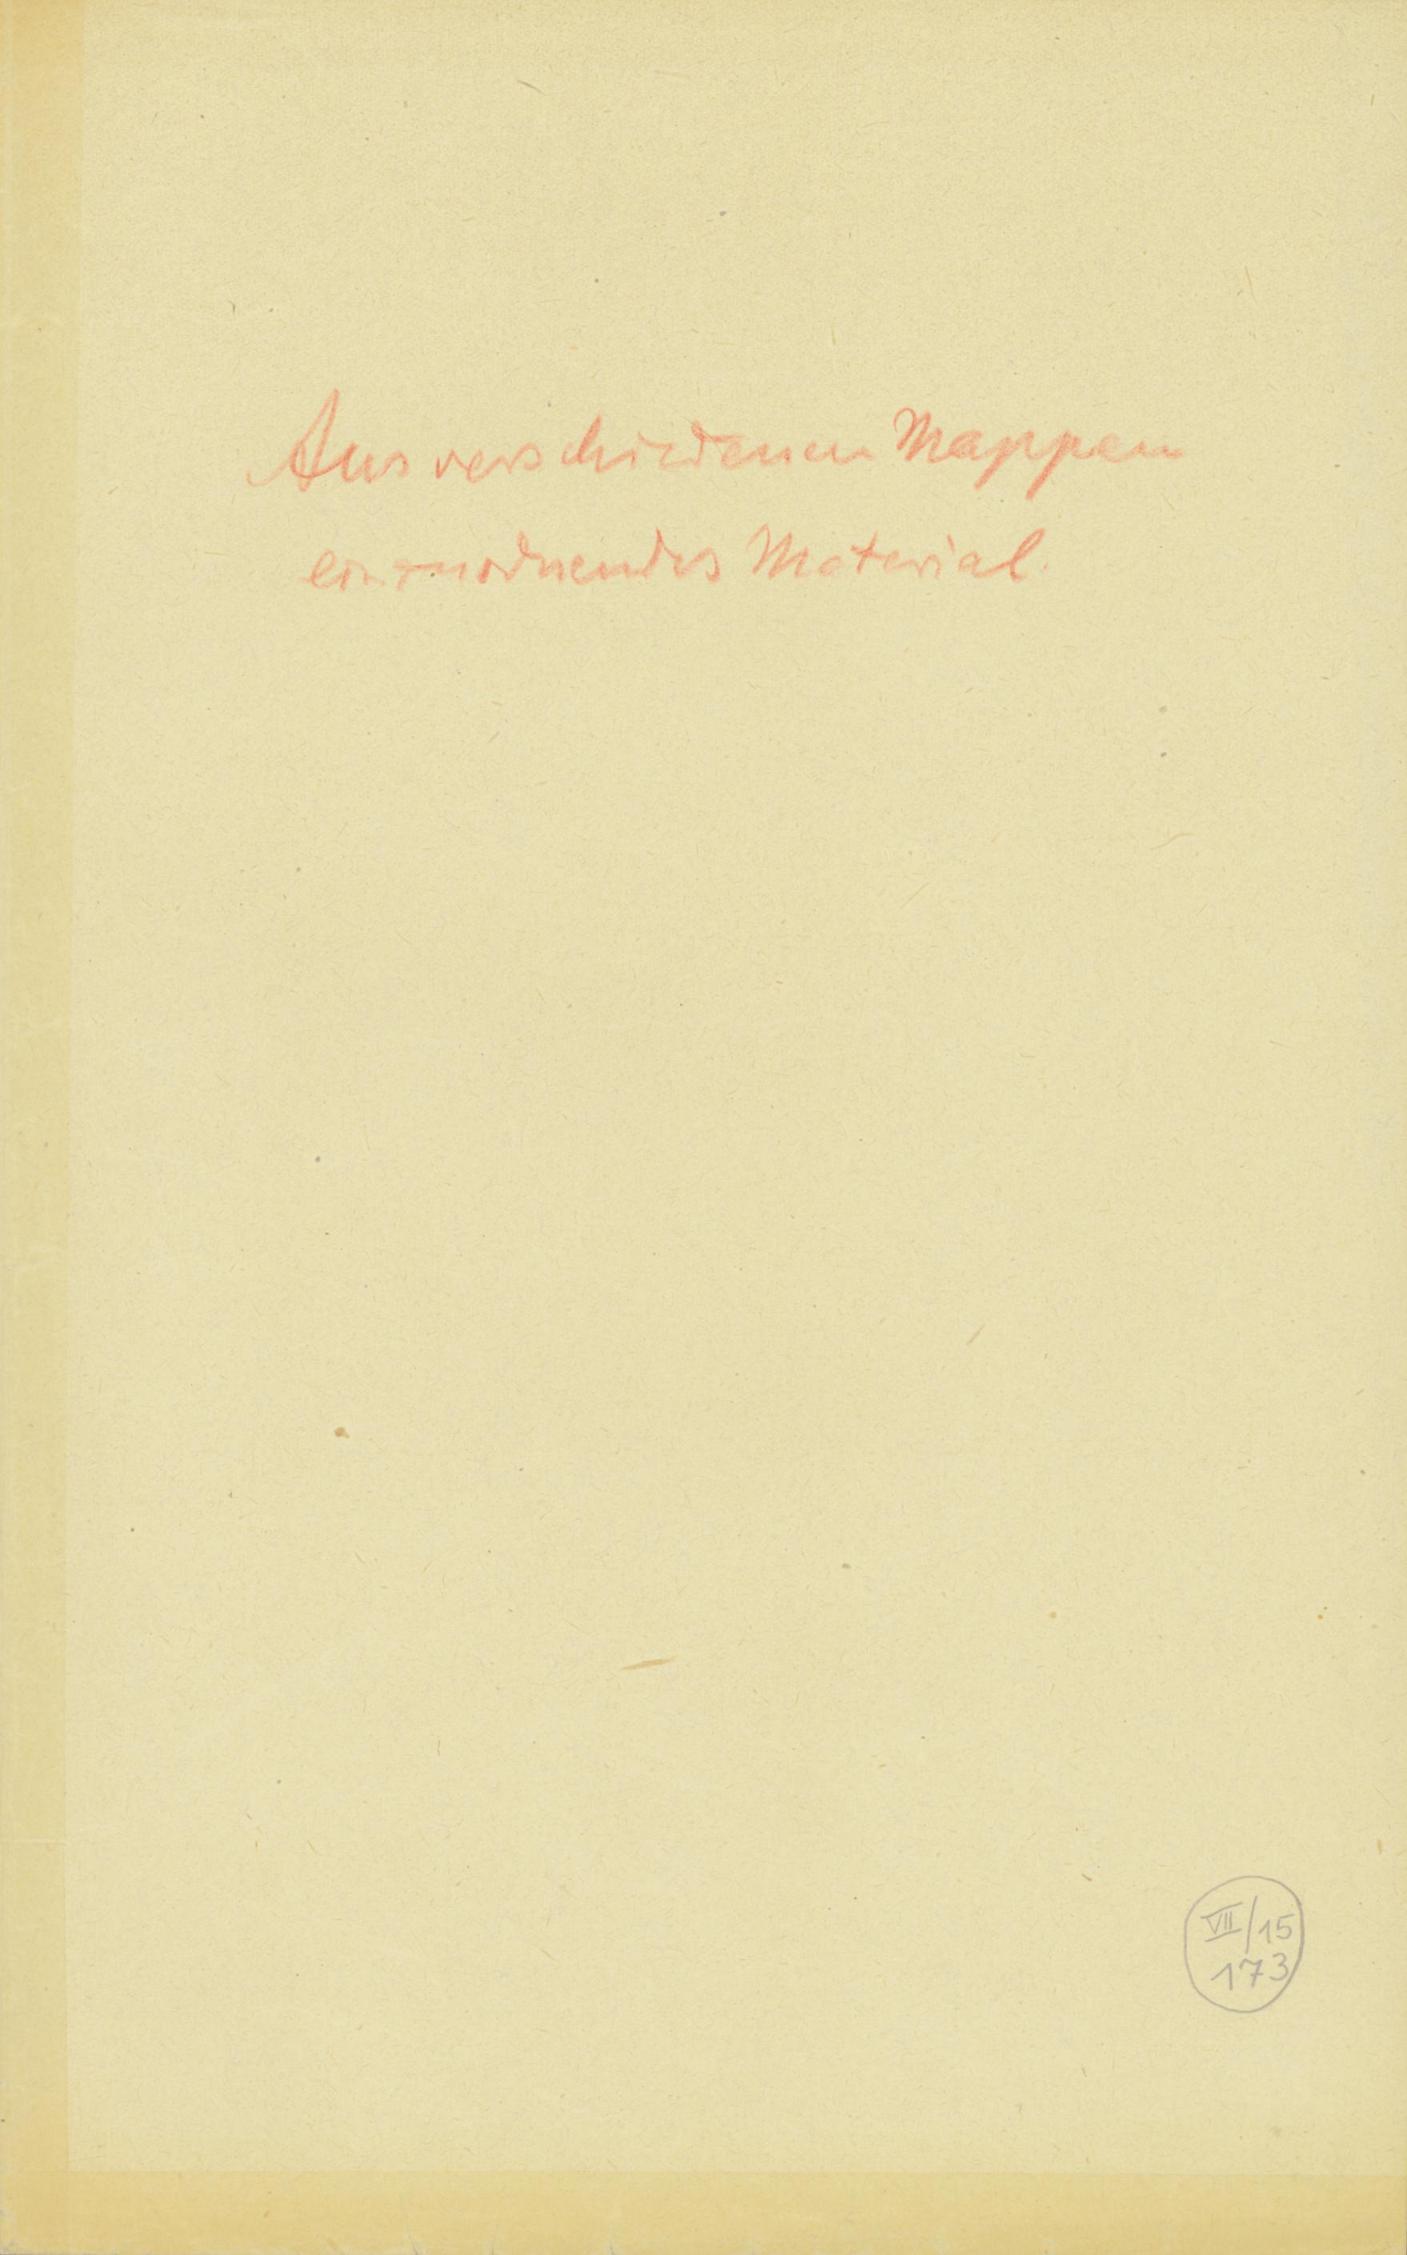 Aus verschiedenen Mappen
einzuordnendes Material.
VII/15
173